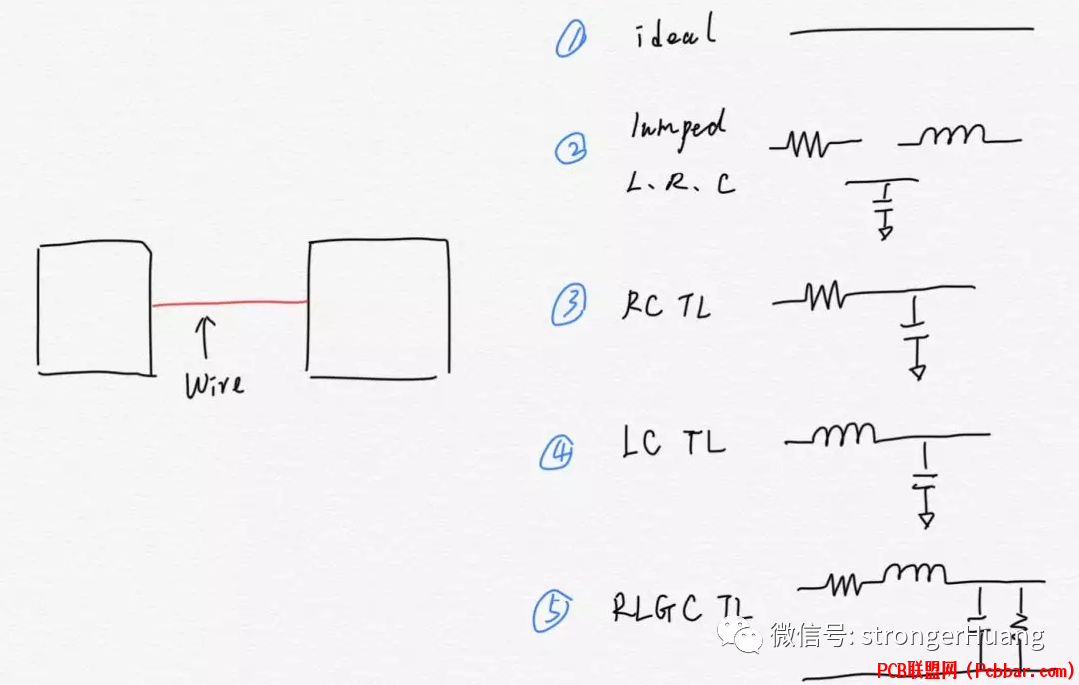 ① ideal
② lumped
L、R、C
③ RC TL
Wire
④ LC TL
⑤ RLGC TL
微信号: strongerHuang
PCB联盟网（Pcbbar.com）